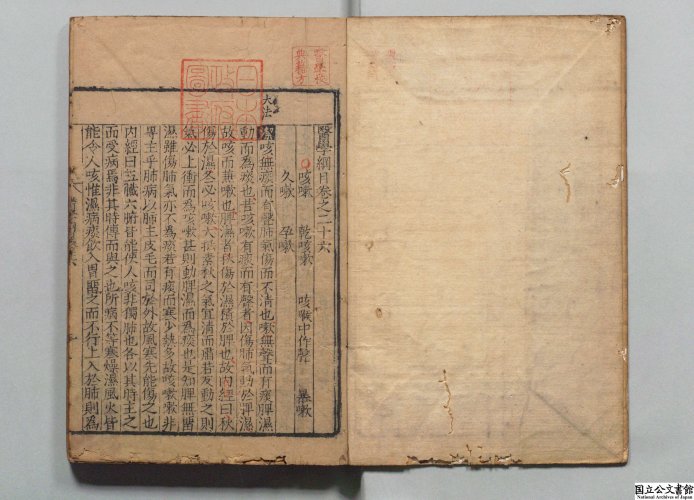 醫學綱目卷之二十六
咳嗽 乾咳嗽 咳嗽中作聲 暴嗽
久嗽 孕嗽
大法
咳無痰而有聲肺氣傷而不清也嗽無聲而有痰脾濕
動而為痰也咳嗽有痰而有聲者因傷肺氣動於脾濕
故咳而兼嗽也脾濕者秋傷於濕積於脾也故内經曰秋
傷於濕冬必咳嗽大抵素秋之氣宜清而肅若反動之則
氣必上衝而為咳嗽甚則動脾濕而為痰也是知脾無留
濕雖傷肺氣亦不為痰若有痰而寒少熱多故咳嗽嗽非
專主乎肺病以肺主皮毛而司於外故風寒先能傷之也
内經曰五臟六腑皆能使人咳非獨肺也各以其時主之
而受病焉非其時傳而與之也所病不等寒燥濕風火皆
能令人咳惟濕病痰飲入胃留之而不行上入於肺則為
日本政府圖書
國立公文書館
National Archives of Japan